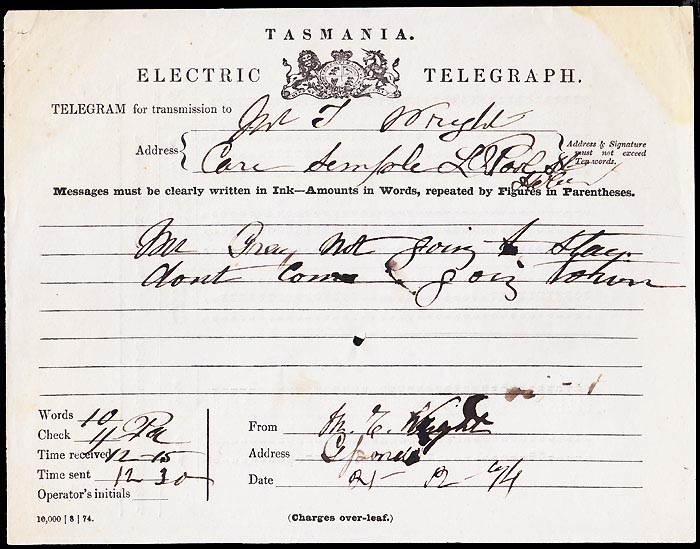 TASMANIA.
ELECTRIC TELEGRAPH.
TELEGRAM for transmission to
Mr T Wright
Address
Care Temple
Address & Signature must not exceed Ten words.
Messages must be clearly written in Ink—Amounts in Words, repeated by Figures in Parentheses.
Mr Gray not going to stay
dont come going
Words 10
Check 11
Time received 12-15
Time sent 12-30
Operator's initials
From M. E. Wright
Address
Date 21 - 12 - 74
10,000 | 8 | 74.
(Charges over-leaf.)